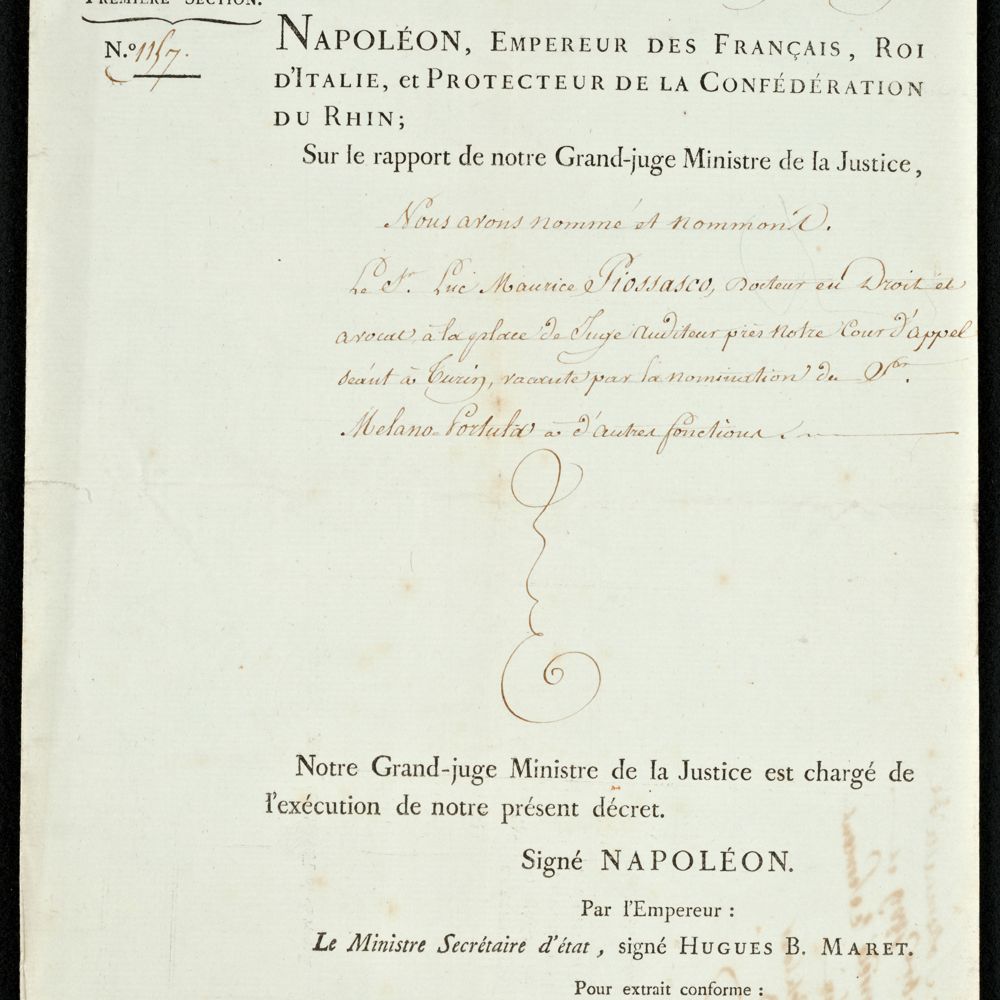 PREMIÈRE SECTION.
N.º 1157.
NAPOLÉON, EMPEREUR DES FRANÇAIS, ROI
D'ITALIE, et PROTECTEUR DE LA CONFÉDÉRATION
DU RHIN;
Sur le rapport de notre Grand-juge Ministre de la Justice,
Nous avons nommé et nommons.
Le Sr. Luc Maurice Piossasco, Docteur en Droit et
avocat, à la place de Juge auditeur près notre Cour d'appel
séant à Turin, vacante par la nomination du Sr.
Melano-Portula à d'autres fonctions.
Notre Grand-juge Ministre de la Justice est chargé de
l'exécution de notre présent décret.
Signé NAPOLÉON.
Par l'Empereur :
Le Ministre Secrétaire d'état, signé HUGUES B. MARET.
Pour extrait conforme :